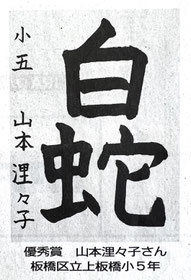 白蛇
小五 山本浬々子
優秀賞 山本浬々子さん
板橋区立上板橋小5年